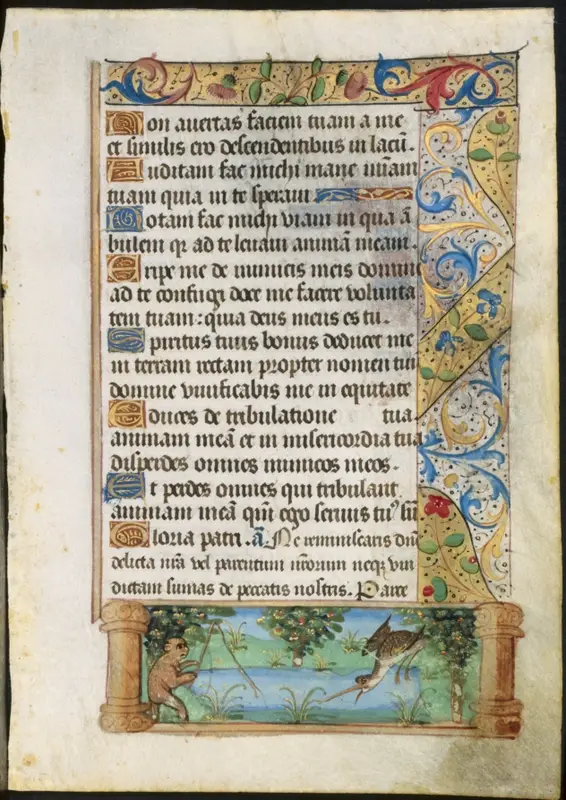 Non auertas faciem tuam a me
et similis ero descendentibus in lacū.
Auditam fac michi mane miam
tuam quia in te speraui
Notam fac michi viam in qua ā
bulem qꝫ ad te leuaui animā meam.
Eripe me de inimicis meis domine
ad te confugi doce me facere volunta
tem tuam: quia deus meus es tu.
Spiritus tuus bonus deducet me
in terram rectam propter nomen tuū
domine viuificabis me in equitate
Educes de tribulatione tua
animam meā et in misericordia tua
disperdes omnes inimicos meos.
Et perdes omnes qui tribulant
animam meā qm̄ ego seruus tuꝰ sū
Gloria patri. ā. Ne reminiscaris dn̄e
delicta nr̄a vel parentum nr̄orum neqꝫ vin
dictam sumas de peccatis nostris. Pater